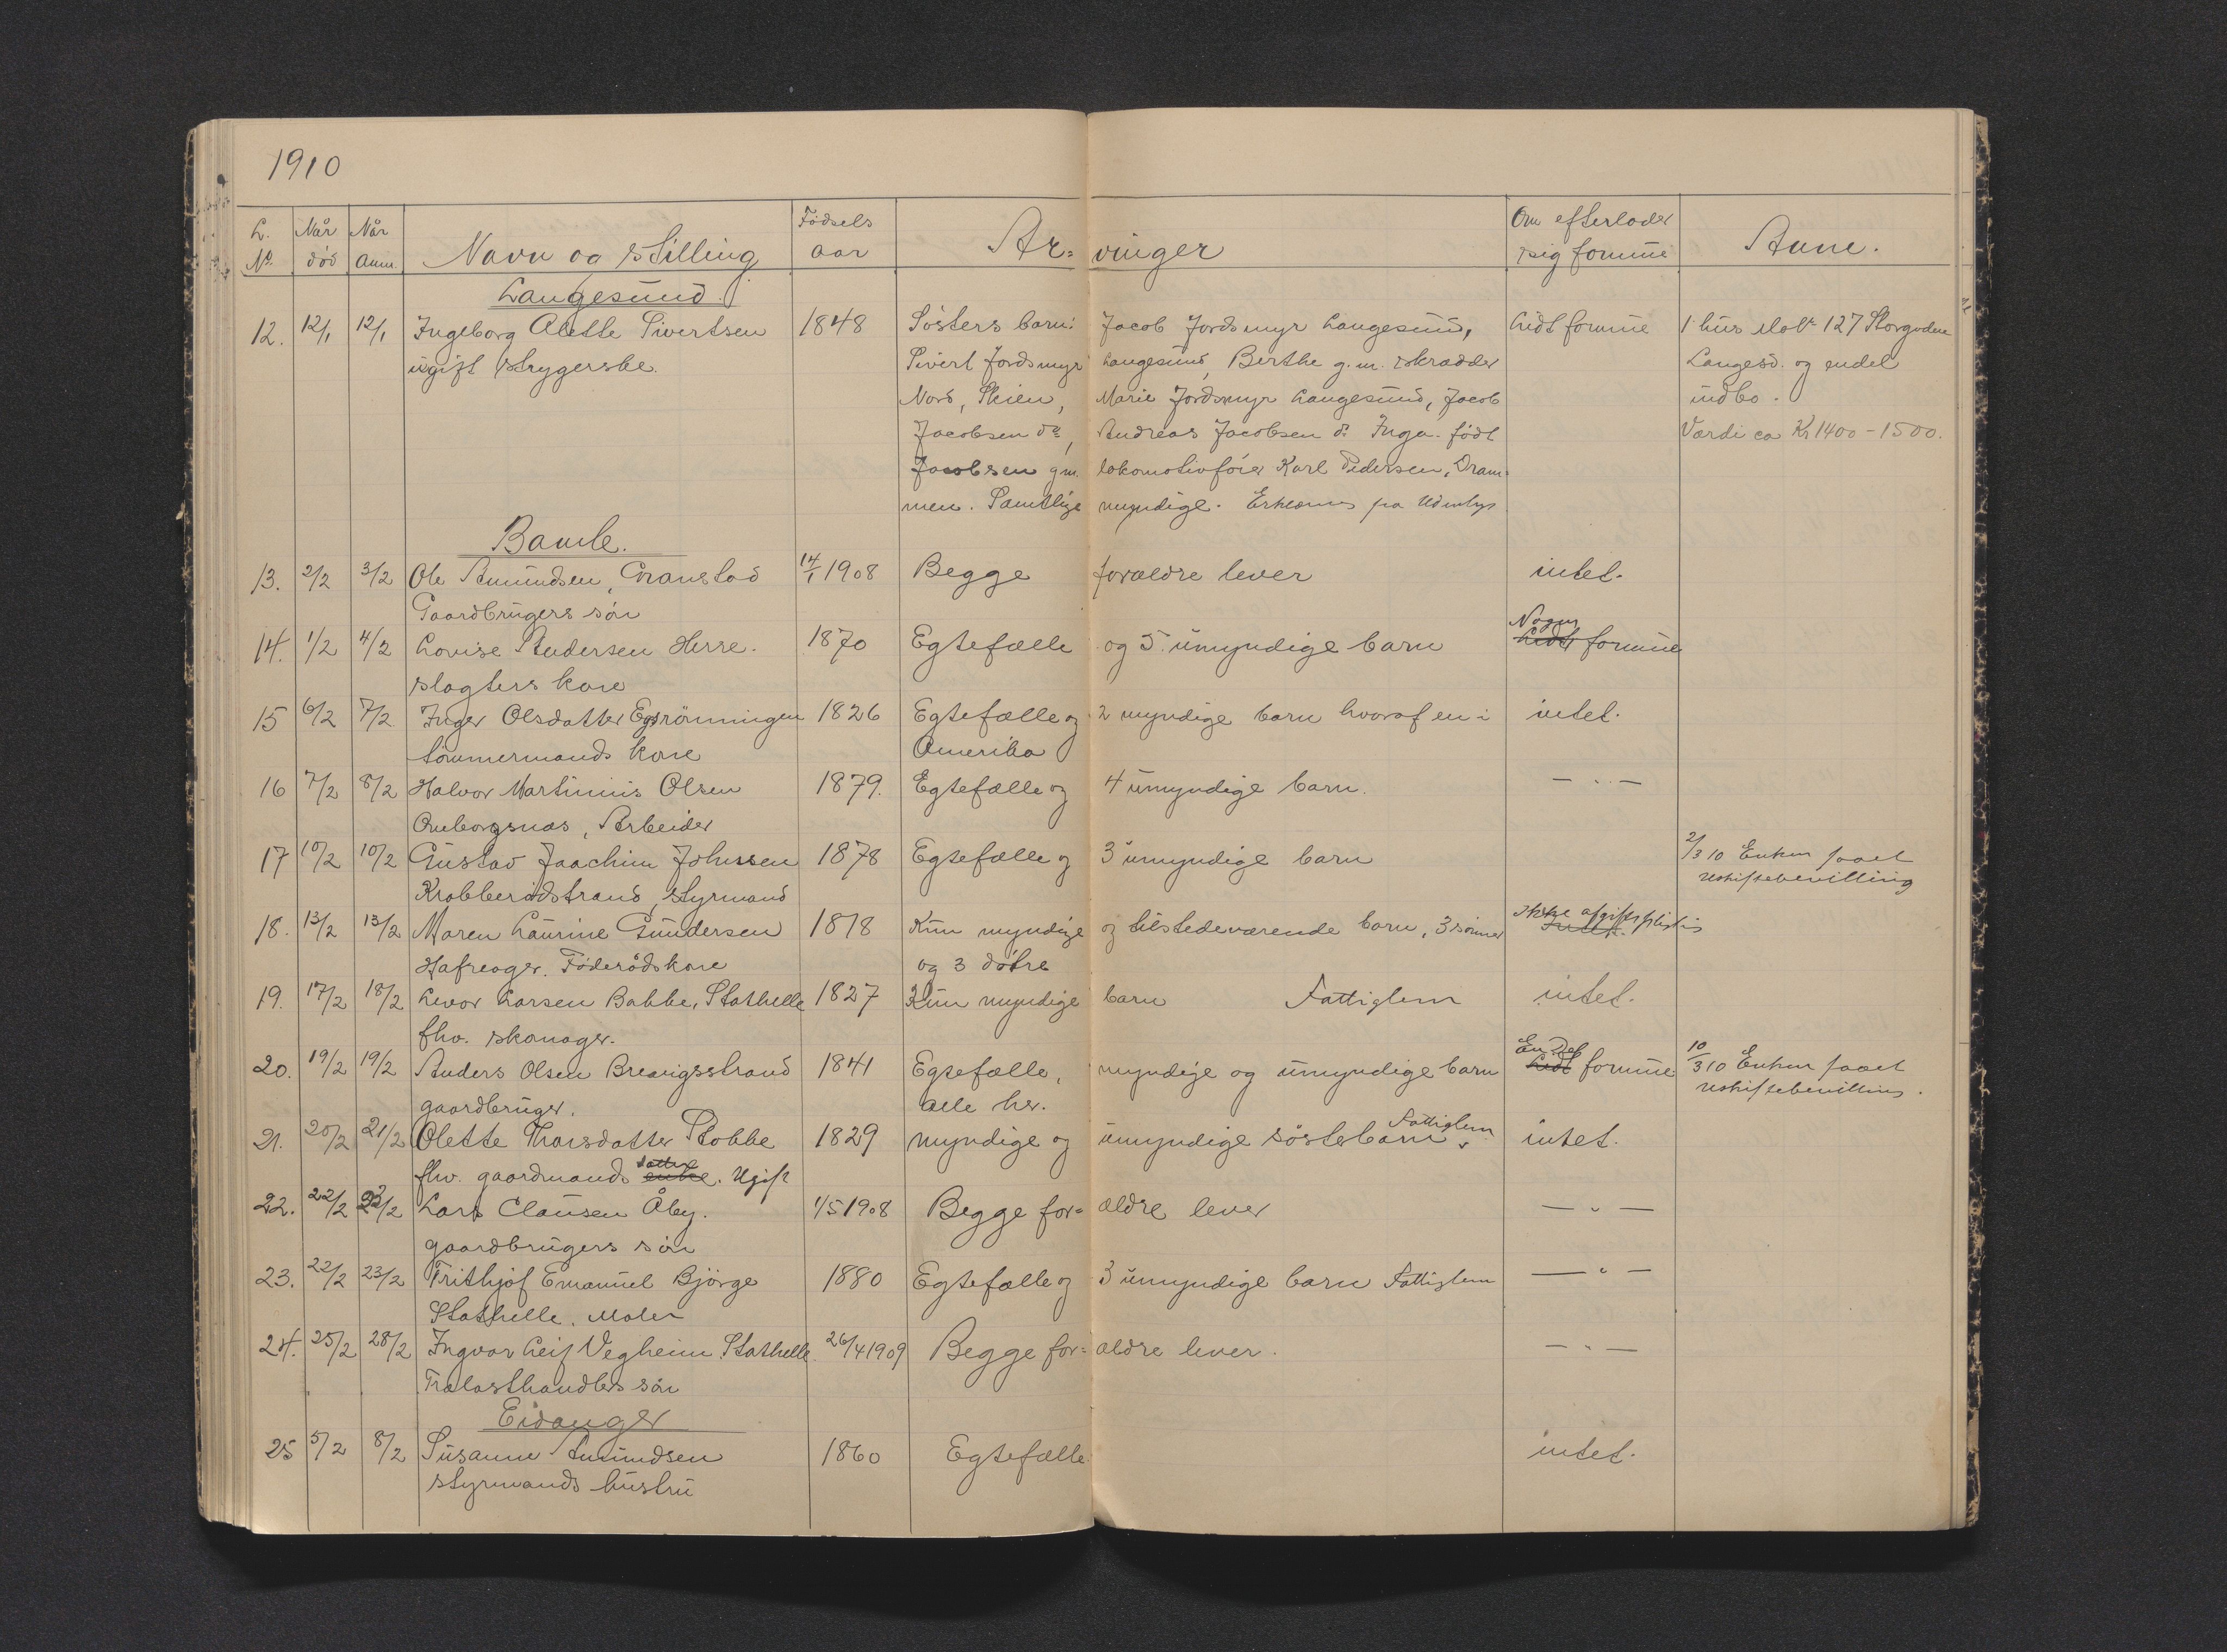 1910
L. Når Når Fødsels Om efterlader
No. død Anm. Navn og stilling aar Ar= vinger sig formue Anm.
Langesund.
12. 12/1 12/1 Ingeborg Alette Sivertsen 1848 Søsters barn: Jacob Jordsmyr Langesund, Lidt formue 1 hus Mat. 127 Storgaden
ugift strygerske. Sivert Jordsmyr Langesund, Berthe g.m. skrædder Langesd. og endel
Nord, Skien, Marie Jordsmyr Langesund, Jacob indbo.
Jacobsen do, Andreas Jacobsen do Inga født Værdi ca Kr 1400-1500.
Jacobsen gm. lokomotivfører Karl Pedersen, Dram=
men. Samtlige myndige.
Bamle.
13. 2/2 3/2 Ole Amundsen, Granstad 14/1 1908 Begge forældre lever intet.
Gaardbrugers søn
14. 1/2 4/2 Lovise Andersen Herre. 1870 Egtefælle og 5 umyndige barn Nogen Lidt formue
slagters kone
15 6/2 7/2 Inger Olsdatter Egsrønningen 1826 Egtefælle og 2 myndige barn hvoraf en i intet.
tømmermands kone Amerika
16 7/2 8/2 Halvor Martinius Olsen 1879. Egtefælle og 4 umyndige barn. — " —
Omborgsnæs, Arbeider
17 10/2 10/2 Gustav Joachim Johnsen 1878 Egtefælle og 3 umyndige barn 2/3 10 Enken faaet
Krabberødstrand, styrmand uskiftebevilling
18. 13/2 13/2 Maren Laurine Gundersen 1818 Kun myndige og tilstedeværende barn, 3 sønner Ikke afgiftspligtig Intet.
Hafreager. Føderådskone og 3 døtre
19. 17/2 18/2 Levor Larsen Bakke, Stathelle 1827 Kun myndige barn Fattiglem intet.
fhv. skomager.
20. 19/2 19/2 Anders Olsen Brevigsstrand 1841 Egtefælle, myndige og umyndige barn En Del Lidt formue 10/3 10 Enken faaet
gaardbruger. alle her. uskiftebevilling.
21. 20/2 21/2 Olette Thorsdatter Stokke 1829 myndige og umyndige søstebarn. Fattiglem intet.
fhv. gaardmands datter enke. Ugift
22. 22/2 23/2 Lars Clausen Åby. 1/5 1908 Begge for= ældre lever — " —
gaardbrugers søn
23. 22/2 23/2 Frithjof Emanuel Bjørge 1880 Egtefælle og 3 umyndige barn Fattiglem — " —
Stathelle, Maler
24. 25/2 28/2 Ingvar Leif Vegheim Stathelle 26/4 1909 Begge for= ældre lever. — " —
Trælasthandlers søn
Eidanger
25 5/2 8/2 Susanne Amundsen 1860 Egtefælle intet.
styrmands hustru